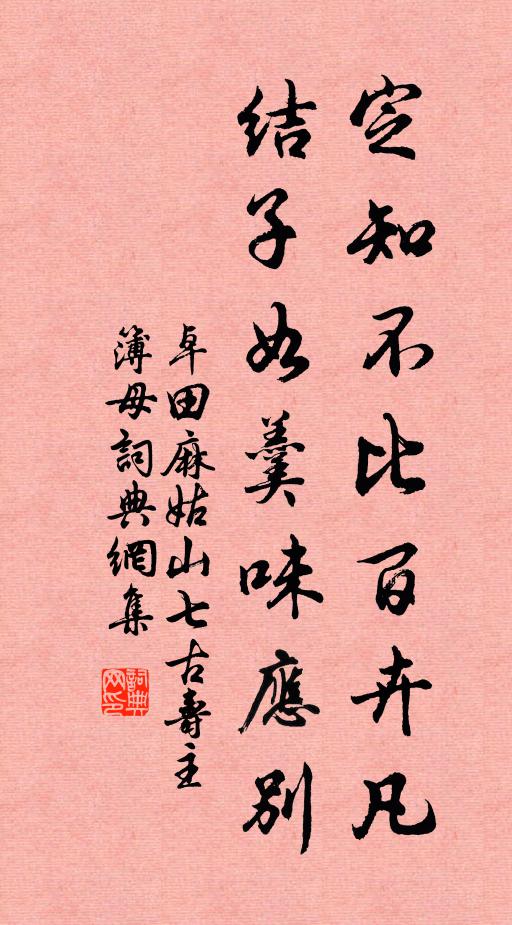 定知不比百卉凡
結子如羹味應別
卓田麻姑山七古壽主
簿母詞典網集
詞典
网印